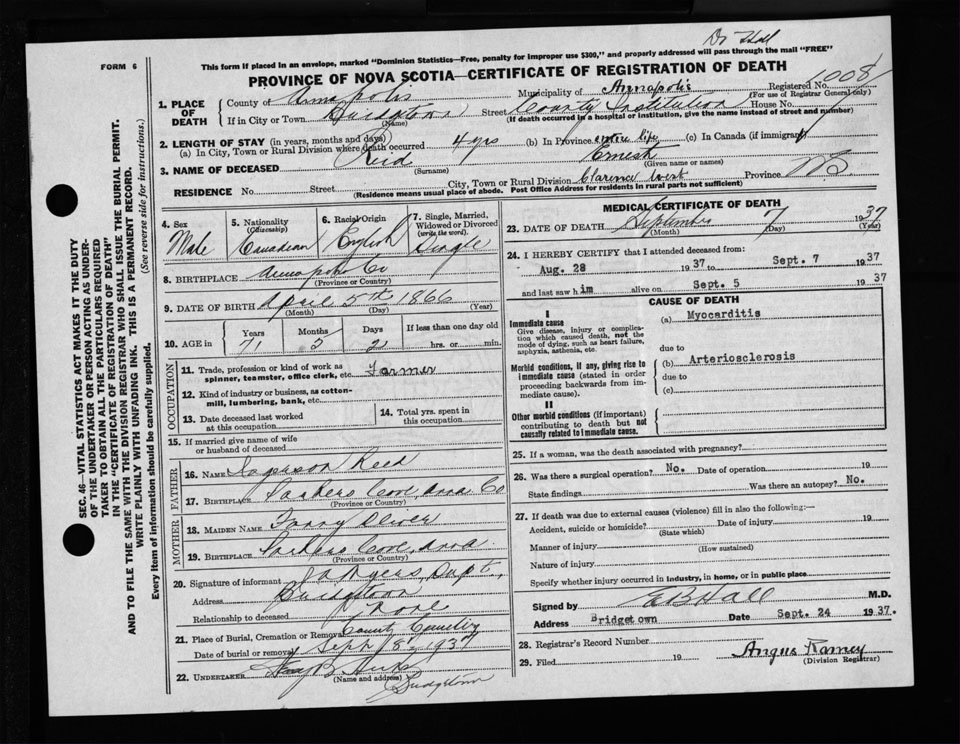 Dr Hall
FORM 6
This form if placed in an envelope, marked "Dominion Statistics—Free, penalty for improper use $300," and properly addressed will pass through the mail "FREE"
PROVINCE OF NOVA SCOTIA—CERTIFICATE OF REGISTRATION OF DEATH
1008
1. PLACE OF DEATH County of Annapolis Municipality of Annapolis Registered No. (For use of Registrar General only)
If in City or Town Bridgetown (Name) Street County Institution House No.
(If death occurred in a hospital or institution, give the name instead of street and number)
2. LENGTH OF STAY (in years, months and days)
(a) In City, Town or Rural Division where death occurred 4 yrs (b) In Province entire life (c) In Canada (if immigrant)
3. NAME OF DECEASED Reid (Surname) Ernest (Given name or names)
RESIDENCE No. Street City, Town or Rural Division Clarence West Province NS
(Residence means usual place of abode. Post Office Address for residents in rural parts not sufficient)
4. Sex Male
5. Nationality (Citizenship) Canadian
6. Racial Origin English
7. Single, Married, Widowed or Divorced (write the word) Single
8. BIRTHPLACE Annapolis Co
(Province or Country)
9. DATE OF BIRTH April 5th 1866
(Month) (Day) (Year)
10. AGE in Years 71 Months 5 Days 2 If less than one day old hrs. or min.
OCCUPATION
11. Trade, profession or kind of work as spinner, teamster, office clerk, etc. Farmer
12. Kind of industry or business, as cotton-mill, lumbering, bank, etc.
13. Date deceased last worked at this occupation
14. Total yrs. spent in this occupation
15. If married give name of wife or husband of deceased
FATHER
16. NAME Reed
17. BIRTHPLACE Parkers Cove, Anna Co
(Province or Country)
MOTHER
18. MAIDEN NAME Fanny Oliver
19. BIRTHPLACE Parkers Cove, Anna
(Province or Country)
20. Signature of informant Myers, Supt,
Address Bridgetown
Relationship to deceased none
21. Place of Burial, Cremation or Removal County Cemetery
Date of burial or removal Sept 8th 1937
22. UNDERTAKER B Hicks
(Name and address)
Bridgetown
MEDICAL CERTIFICATE OF DEATH
23. DATE OF DEATH September 7 1937
(Month) (Day) (Year)
24. I HEREBY CERTIFY that I attended deceased from
Aug. 28 1937 to Sept. 7 1937
and last saw him alive on Sept. 5 1937
CAUSE OF DEATH
I
Immediate cause
Give disease, injury or complication which caused death, not the mode of dying, such as heart failure, asphyxia, asthenia, etc.
(a) Myocarditis
due to
Morbid conditions, if any, giving rise to immediate cause (stated in order proceeding backwards from immediate cause).
(b) Arteriosclerosis
due to
(c)
II
Other morbid conditions (if important) contributing to death but not causally related to immediate cause.
25. If a woman, was the death associated with pregnancy?
26. Was there a surgical operation? No. Date of operation 19
State findings Was there an autopsy? No.
27. If death was due to external causes (violence) fill in also the following:—
Accident, suicide or homicide? Date of injury 19
(State which)
Manner of injury
(How sustained)
Nature of injury
Specify whether injury occurred in industry, in home, or in public place
Signed by E B Hall M.D.
Address Bridgetown Date Sept. 24 1937.
28. Registrar's Record Number
29. Filed 19 Angus Ramey
(Division Registrar)
SEC. 46—VITAL STATISTICS ACT MAKES IT THE DUTY
OF THE UNDERTAKER OR PERSON ACTING AS UNDER-
TAKER TO OBTAIN ALL THE PARTICULARS REQUIRED
IN THE "CERTIFICATE OF REGISTRATION OF DEATH"
AND TO FILE THE SAME WITH THE DIVISION REGISTRAR WHO SHALL ISSUE THE BURIAL PERMIT.
WRITE PLAINLY WITH UNFADING INK. THIS IS A PERMANENT RECORD.
(See reverse side for instructions.)
Every item of information should be carefully supplied.